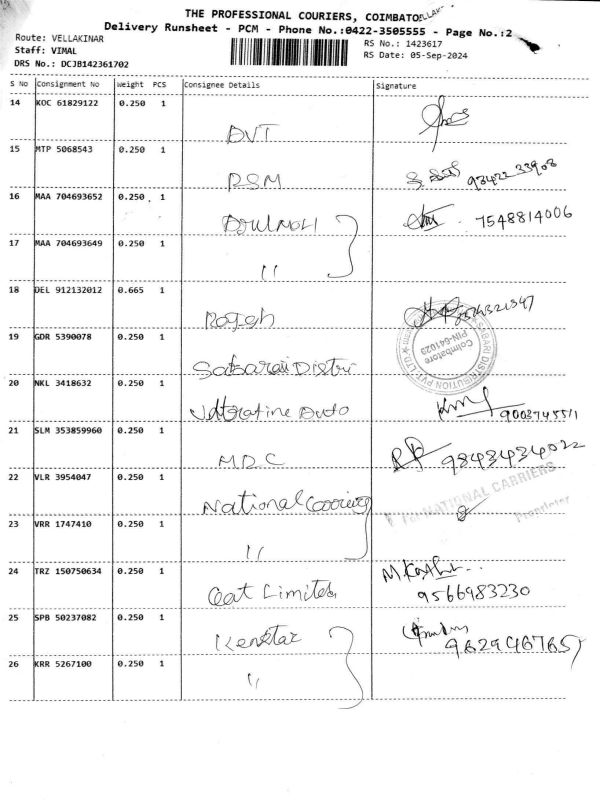 THE PROFESSIONAL COURIERS, COIMBATO
Delivery Runsheet - PCM - Phone No.:0422-3505555 - Page No.:2
Route: VELLAKINAR
RS No.: 1423617
Staff: VIMAL
RS Date: 05-Sep-2024
DRS No.: DCJB142361702
S No Consignment No Weight PCS Consignee Details Signature
14 KOC 61829122 0.250 1
DVT
15 MTP 5068543 0.250 1
DSM 9342233908
16 MAA 704693652 0.250 1
7548814006
17 MAA 704693649 0.250 1
"
18 DEL 912132012 0.665 1
Rogesh
19 GDR 5390078 0.250 1
SABARI DISTRIBUTION PVT. LTD.
Coimbatore
PIN-641029
20 NKL 3418632 0.250 1
9003745511
21 SLM 353859960 0.250 1
MDC 9843434022
22 VLR 3954047 0.250 1
National Carriers
For NATIONAL CARRIERS
Proprietor
23 VRR 1747410 0.250 1
"
24 TRZ 150750634 0.250 1
Ceat Limited 9566983230
25 SPB 50237082 0.250 1
Kenstar
26 KRR 5267100 0.250 1
"